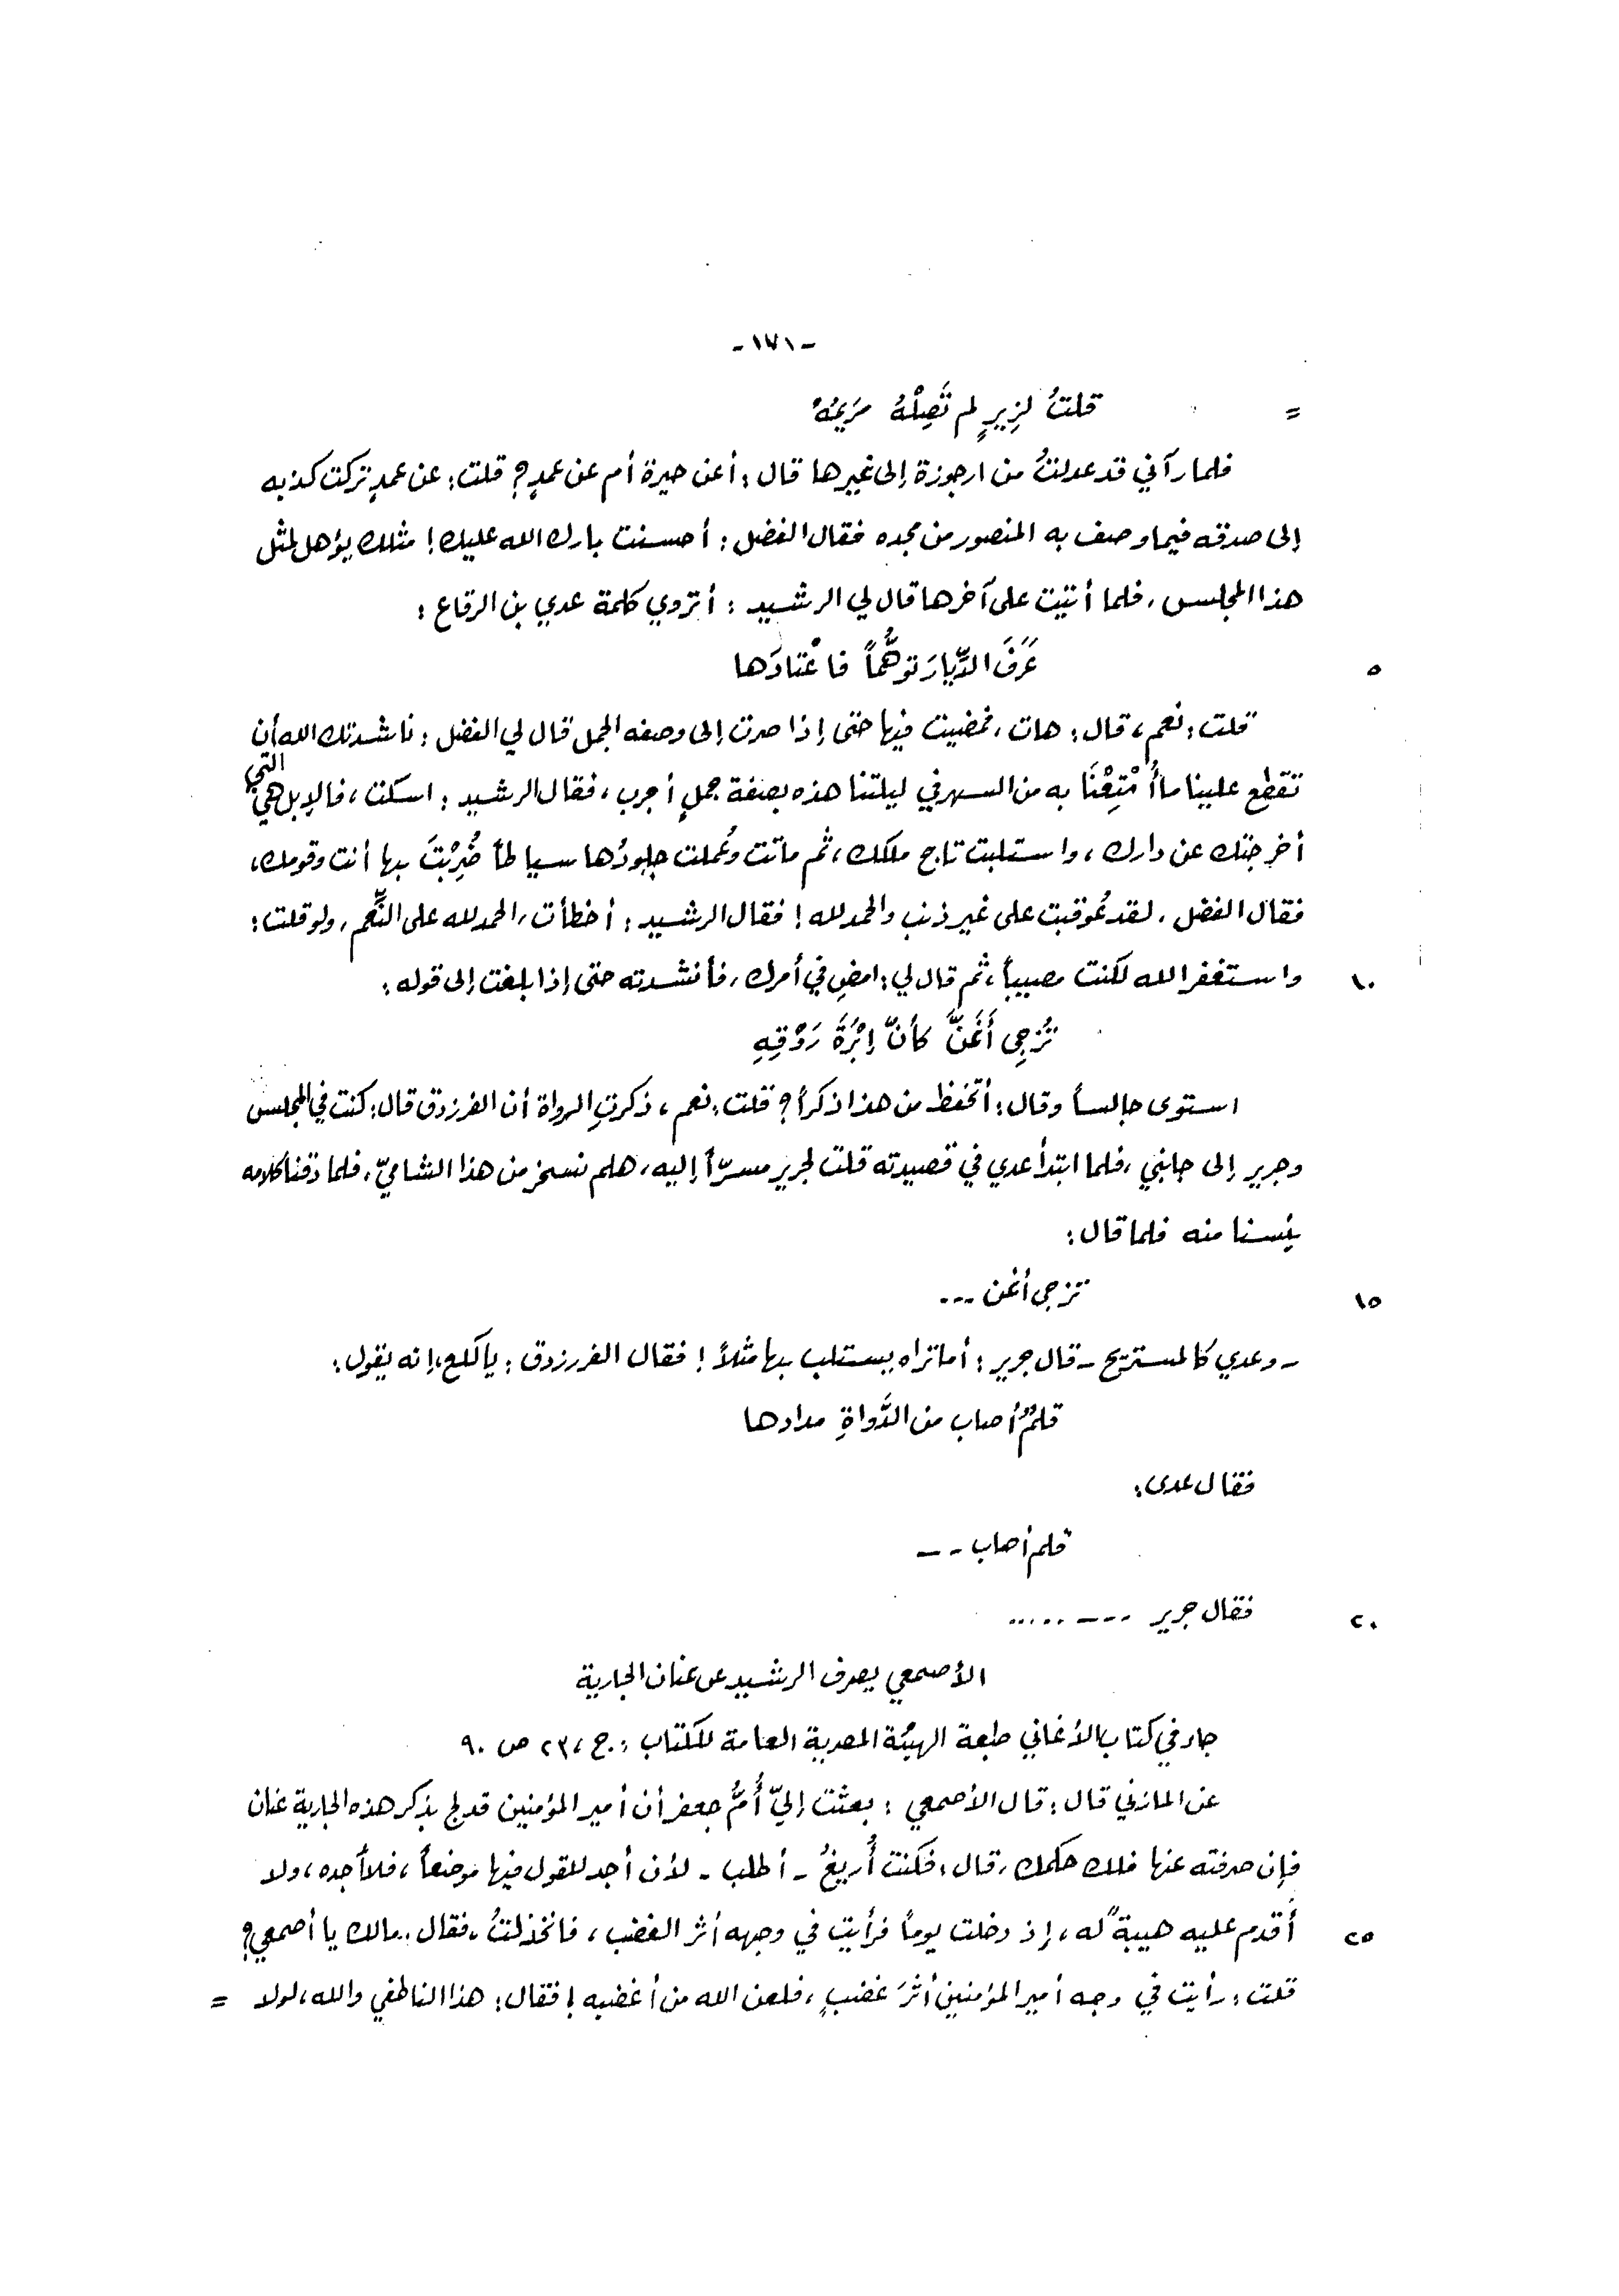 -١٧١-
= قلتُ لزِيرٍ لم تَصِلْهُ مَرْيَمُهْ
فلما رآني قد عدلتُ من ارجوزة إلى غيرها قال: أعن حيرة أم عن عمدٍ؟ قلت: عن عمدٍ تركت كذبه
إلى صدقه فيما وصف به المنصور من مجده فقال الفضل: أحسنت بارك الله عليك! مثلك يؤهل لمثل
هذا المجلس، فلما أتيت على آخرها قال لي الرشيد: أتروي كلمة عدي بن الرقاع:
٥ عَرَفَ الدِّيارَ توهُّماً فاعْتادَها
قلت: نعم، قال: هات، فمضيت فيها حتى إذا صرت إلى وصفه الجمل قال لي الفضل: ناشدتك الله أن
تقطع علينا ما أُمْتِعْنَا به من السهر في ليلتنا هذه بصفة جملٍ أجرب، فقال الرشيد: اسكت، فالإبل هي التي
أخرجتك عن دارك، واستلبت تاج ملكك، ثم ماتت وعُملت جلودُها سياطاً ضُرِبْتَ بها أنت وقومك،
فقال الفضل، لقد عُوقبت على غير ذنب والحمد لله! فقال الرشيد: أخطأت، الحمد لله على النِّعم، ولو قلت:
١٠ واستغفر الله لكنت مصيباً، ثم قال لي: امضِ في أمرك، فأنشدته حتى إذا بلغت إلى قوله:
تُزجِي أَغَنَّ كأنّ إبْرَةَ رَوْقِهِ
استوى جالساً وقال: أتحفظ من هذا ذكراً؟ قلت: نعم، ذكرتِ الرواة أن الفرزدق قال: كنت في المجلس
وجرير إلى جانبي، فلما ابتدأ عدي في قصيدته قلت لجرير مسرّاً إليه، هلم نسخر من هذا الشاميّ، فلما ذقنا كلامه
يئسنا منه فلما قال:
١٥ تزجي أغن ...
- وعدي كالمستريح - قال جرير: أما تراه يستلب بها مثلاً! فقال الفرزدق: يا لكع، إنه يقول:
قلمٌ أصاب من الدَّواةِ مدادها
فقال عدي:
قلم أصاب - -
٢٠ فقال جرير --- .....
الأصمعي يصرف الرشيد عن عنان الجارية
جاء في كتاب الأغاني طبعة الهيئة المصرية العامة للكتاب: ج، ٢٣ ص ٩٠
عن المازني قال: قال الأصمعي: بعثت إليّ أُمُّ جعفر أن أمير المؤمنين قد لج بذكر هذه الجارية عنان
فإن صرفته عنها فلك حكمك، قال: فكنت أُريغُ - أطلب - لأن أجد للقول فيها موضعاً، فلا أجده، ولا
٢٥ أقدم عليه هيبةً له، إذ دخلت يوماً فرأيت في وجهه أثر الغضب، فانخذلتُ، فقال: مالك يا أصمعي؟
قلت: رأيت في وجه أمير المؤمنين أثرَ غضبٍ، فلعن الله من أغضبه! فقال: هذا الناطفي والله، لولا =